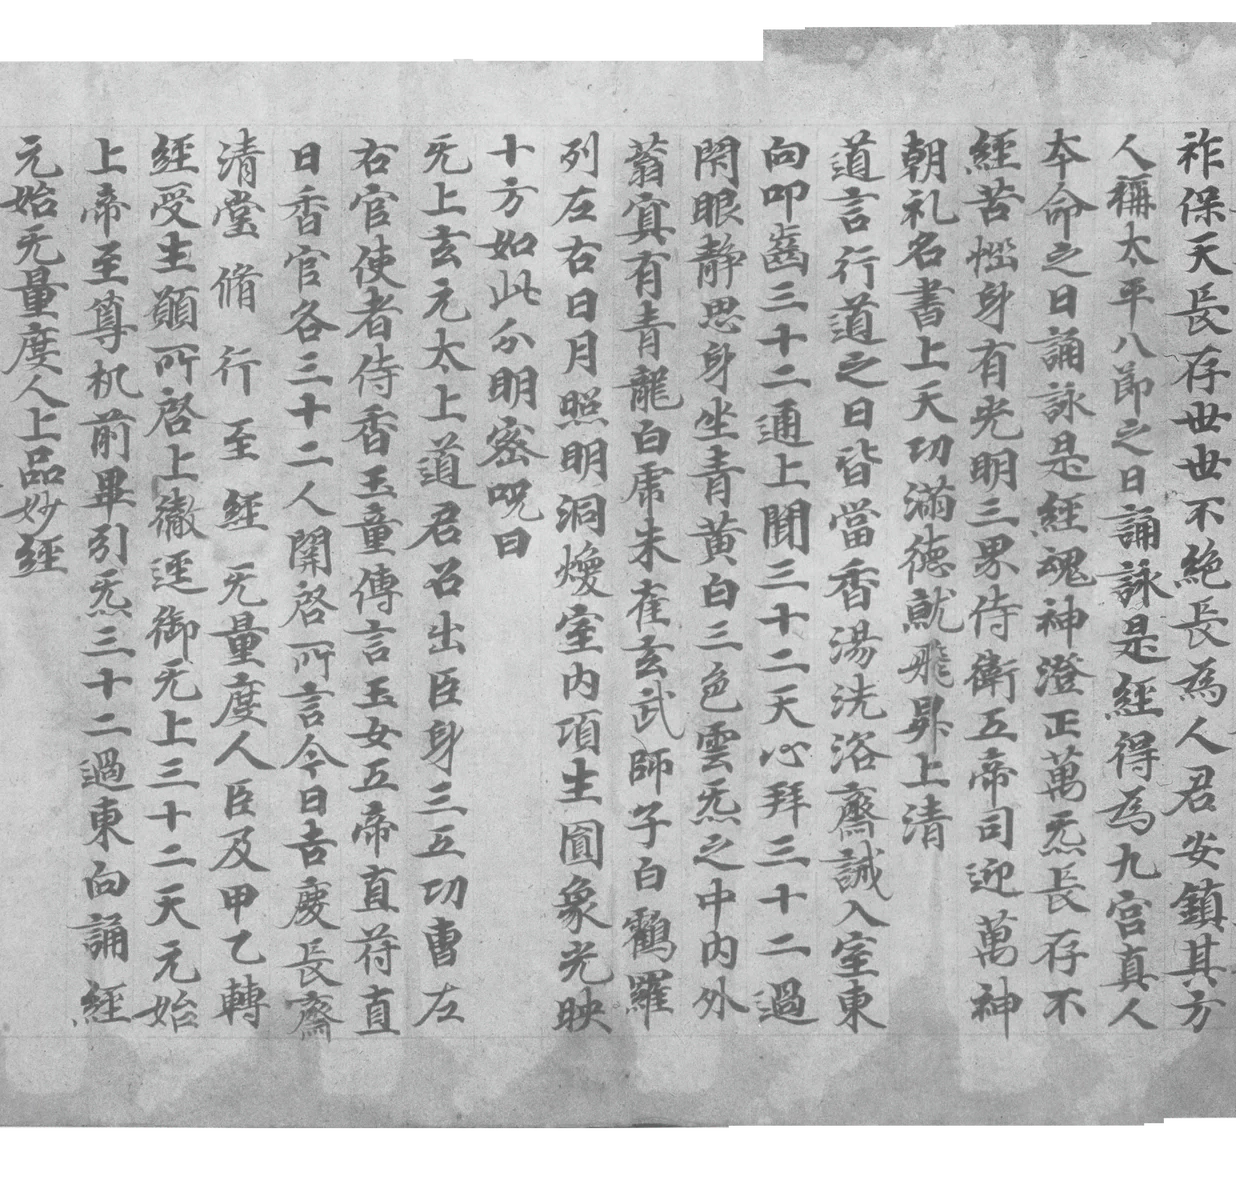 祚保天長存世世不絶長爲人君安鎮其方
人稱太平八節之日誦詠是經得爲九宫真人
夲命之日誦詠是經魂神澄正萬炁長存不
經苦惱身有光明三界侍衛五帝司迎萬神
朝礼名書上天功滿德就飛昇上清
道言行道之日皆當香湯洗浴齋誡入室東
向叩齒三十二通上聞三十二天心拜三十二過
閇眼静思身坐青黄白三色雲炁之中内外
蓊冥有青龍白帍朱雀玄武師子白鶴羅
列左右日月照明洞煥室内項生圓象光映
十方如此分明密呪曰
无上玄元太上道君召出臣身三五功曹左
右官使者侍香玉童傳言玉女五帝直苻直
日香官各三十二人關啓所言今日吉慶長齋
清堂脩行至經无量度人臣及甲乙轉
經受生願所啓上徹逕御无上三十二天元始
上帝至尊机前畢引炁三十二過東向誦經
元始无量度人上品妙經